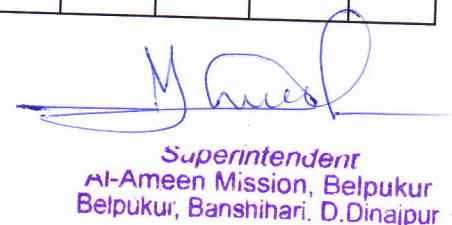 Superintendent
Al-Ameen Mission, Belpukur
Belpukur, Banshihari, D.Dinajpur